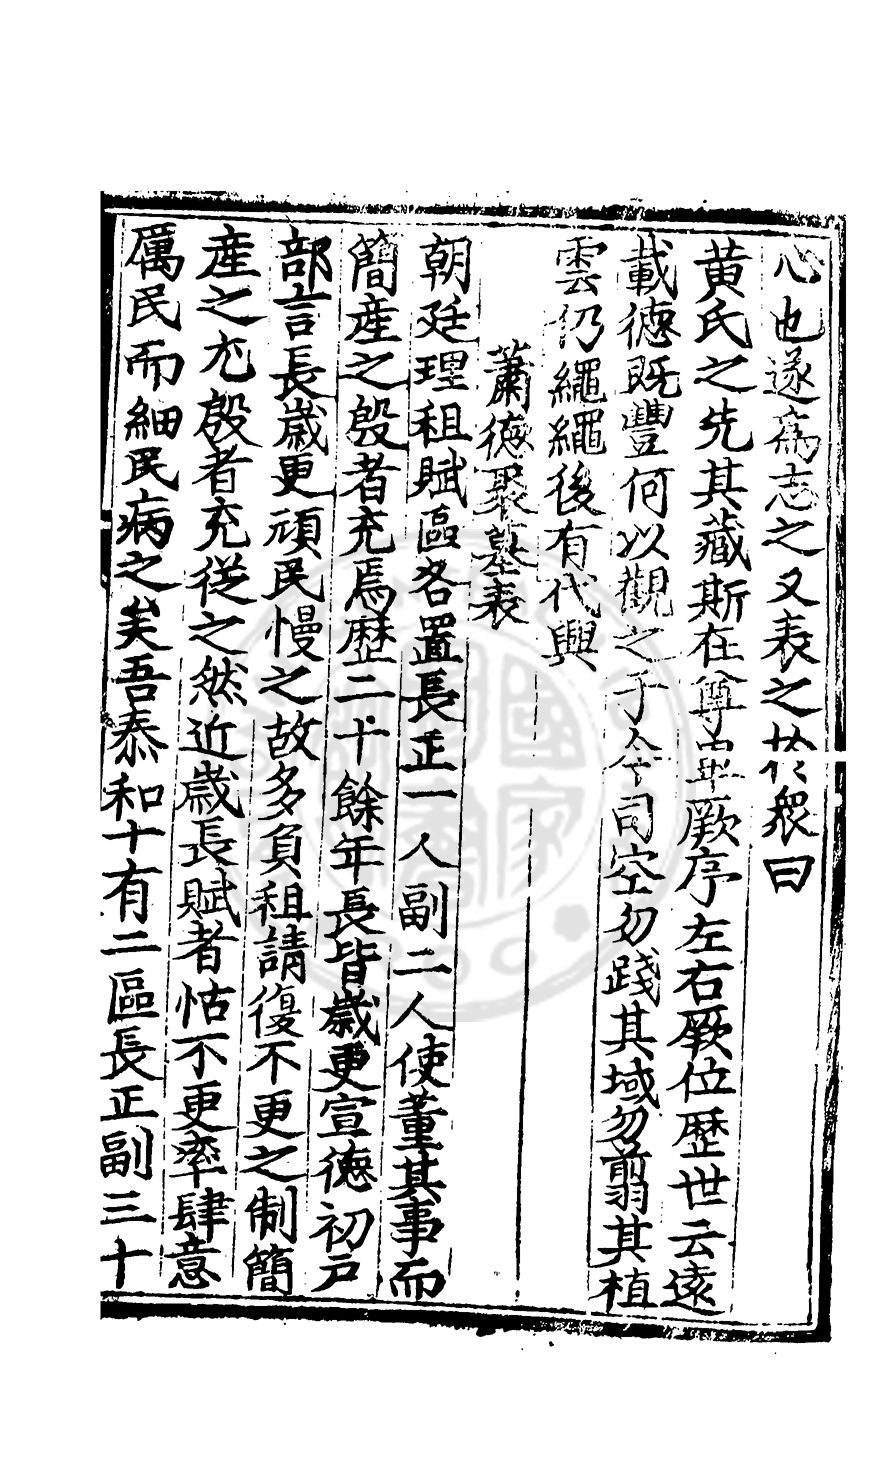 心也遂為志之又表之於眾曰
黃氏之先其藏斯在尊卑厥序左右厥位歷世云遠
載德既豐何以觀之于今司空勿踐其域勿翦其植
雲仍繩繩後有代興
蕭德聚墓表
朝廷理租賦區各置長正一人副二人使董其事而
簡產之殷者充焉歷二十餘年長皆歲更宣德初戶
部言長歲更頑民慢之故多負租請復不更之制簡
產之尤殷者充從之然近歲長賦者怙不更率肆意
厲民而細民病之矣吾泰和十有二區長正副三十